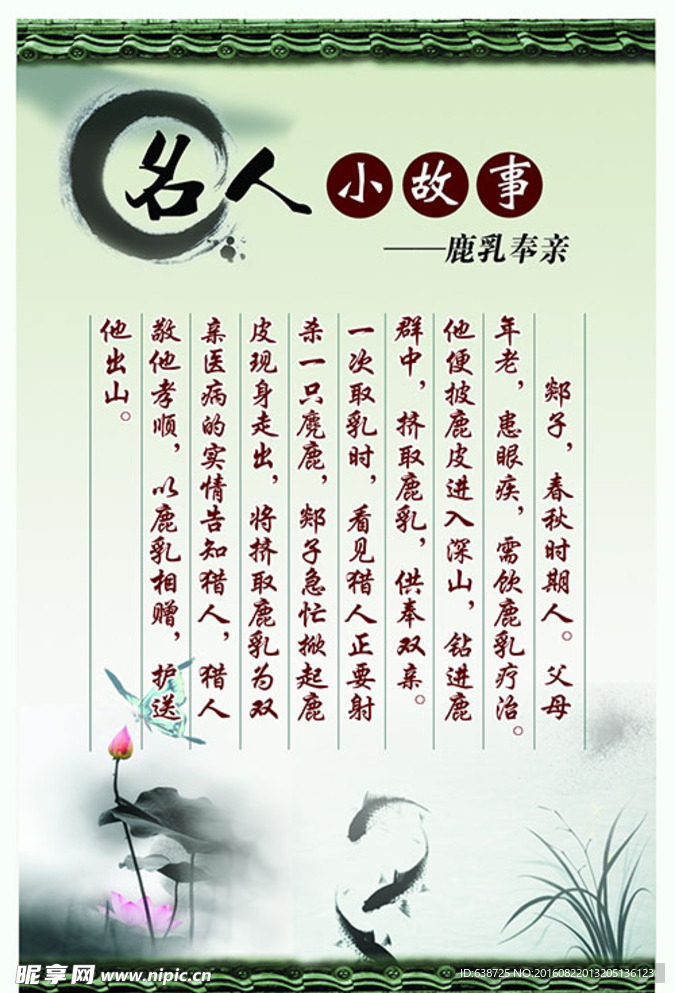 名人小故事
——鹿乳奉亲
郯子，春秋时期人。父母
年老，患眼疾，需饮鹿乳疗治。
他便披鹿皮进入深山，钻进鹿
群中，挤取鹿乳，供奉双亲。
一次取乳时，看见猎人正要射
杀一只麂鹿，郯子急忙掀起鹿
皮现身走出，将挤取鹿乳为双
亲医病的实情告知猎人，猎人
敬他孝顺，以鹿乳相赠，护送
他出山。
昵享网 www.nipic.cn
ID:638725 NO:20160822013205136123